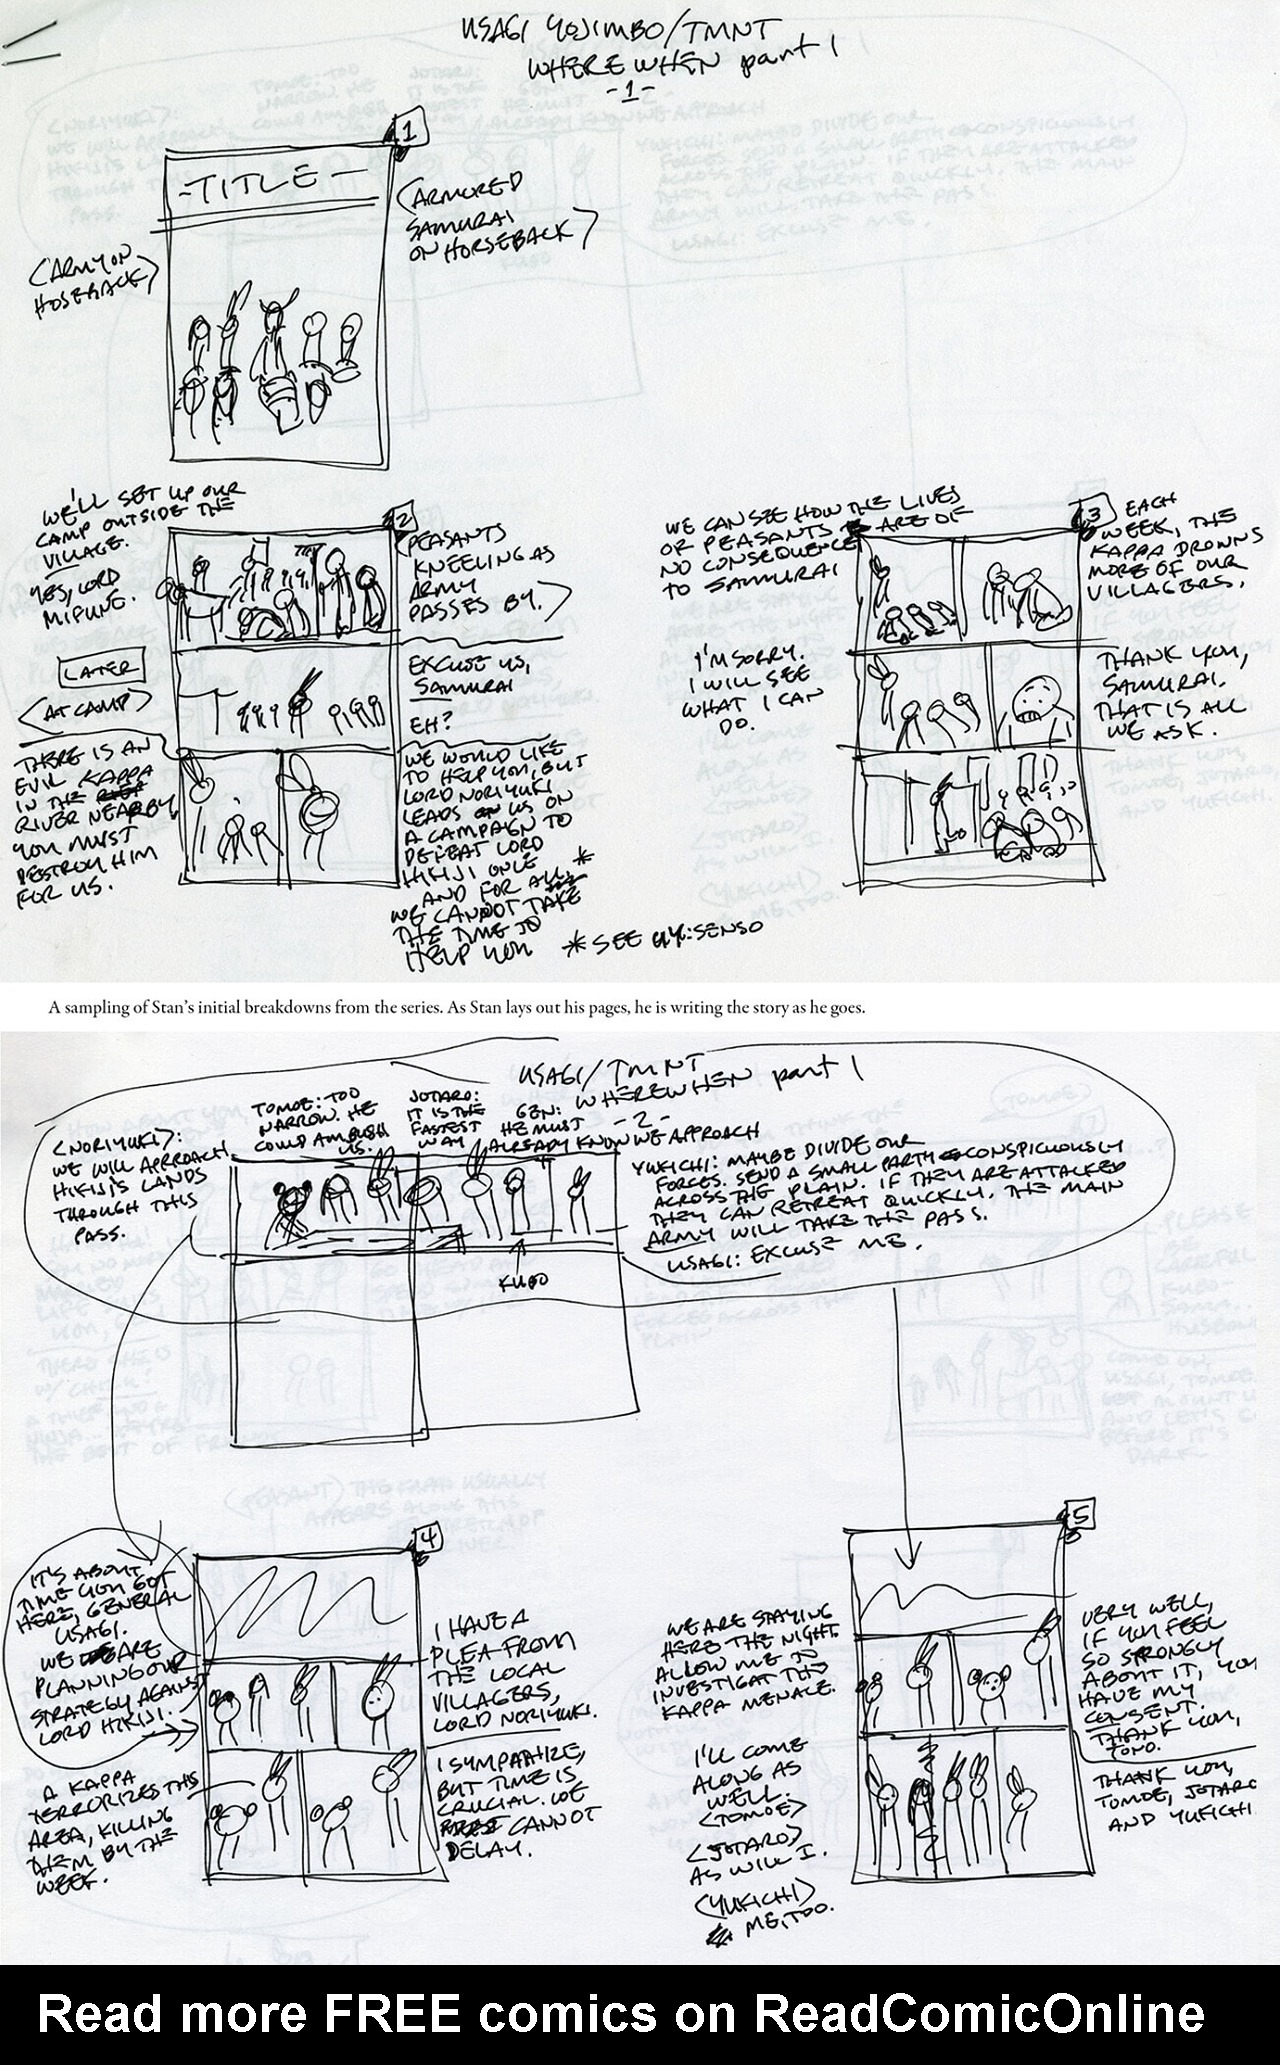 USAGI YOJIMBO/TMNT
WHERE WHEN part 1
-1-
1
-TITLE-
(ARMORED
SAMURAI
ON HORSEBACK)
(ARMY ON
HOSEBACK)
WE'LL SET UP OUR
CAMP OUTSIDE THE
VILLAGE.
YES, LORD
MIFUNE.
2
(PEASANTS
KNEELING AS
ARMY
PASSES BY.)
LATER
(AT CAMP)
EXCUSE US,
SAMURAI
EH?
THERE IS AN
EVIL KAPPA
IN THE
RIVER NEARBY
YOU MUST
DESTROY HIM
FOR US.
WE WOULD LIKE
TO HELP YOU, BUT
LORD NORIYUKI
LEADS US ON
A CAMPAIGN TO
DEFEAT LORD
HIKIJI ONCE
AND FOR ALL.*
WE CANNOT TAKE
THE TIME TO
HELP YOU
* SEE UY: SENSO
WE CAN SEE HOW THE LIVES
OR PEASANTS ARE OF
NO CONSEQUENCE
TO SAMURAI
3
EACH
WEEK, THE
KAPPA DROWNS
MORE OF OUR
VILLAGERS.
I'M SORRY.
I WILL SEE
WHAT I CAN
DO.
THANK YOU,
SAMURAI.
THAT IS ALL
WE ASK.
A sampling of Stan's initial breakdowns from the series. As Stan lays out his pages, he is writing the story as he goes.
USAGI/TMNT
WHEREWHEN part 1
-2-
(NORIYUKI):
WE WILL APPROACH
HIKIJI'S LANDS
THROUGH THIS
PASS.
TOMOE: TOO
NARROW. HE
COULD AMBUSH
US.
JOTARO:
IT IS THE
FASTEST
WAY
GEN:
HE MUST
ALREADY KNOW WE APPROACH
YUKICHI: MAYBE DIVIDE OUR
FORCES. SEND A SMALL PARTY CONSPICUOUSLY
ACROSS THE PLAIN. IF THEY ARE ATTACKED
THEY CAN RETREAT QUICKLY. THE MAIN
ARMY WILL TAKE THE PASS.
USAGI: EXCUSE ME.
KUGO
4
IT'S ABOUT
TIME YOU GOT
HERE, GENERAL
USAGI.
WE ARE
PLANNING OUR
STRATEGY AGAINST
LORD HIKIJI.
I HAVE A
PLEA FROM
THE LOCAL
VILLAGERS,
LORD NORIYUKI.
A KAPPA
TERRORIZES THIS
AREA, KILLING
THEM BY THE
WEEK.
I SYMPATHIZE,
BUT TIME IS
CRUCIAL. WE
CANNOT
DELAY.
5
WE ARE STAYING
HERE THE NIGHT.
ALLOW ME TO
INVESTIGAT THIS
KAPPA MENACE.
VERY WELL,
IF YOU FEEL
SO STRONGLY
ABOUT IT, YOU
HAVE MY
CONSENT.
THANK YOU,
TONO.
I'LL COME
ALONG AS
WELL.
(TOMOE)
(JOTARO)
AS WILL I.
(YUKICHI)
ME, TOO.
THANK YOU,
TOMOE, JOTARO
AND YUKICHI
Read more FREE comics on ReadComicOnline